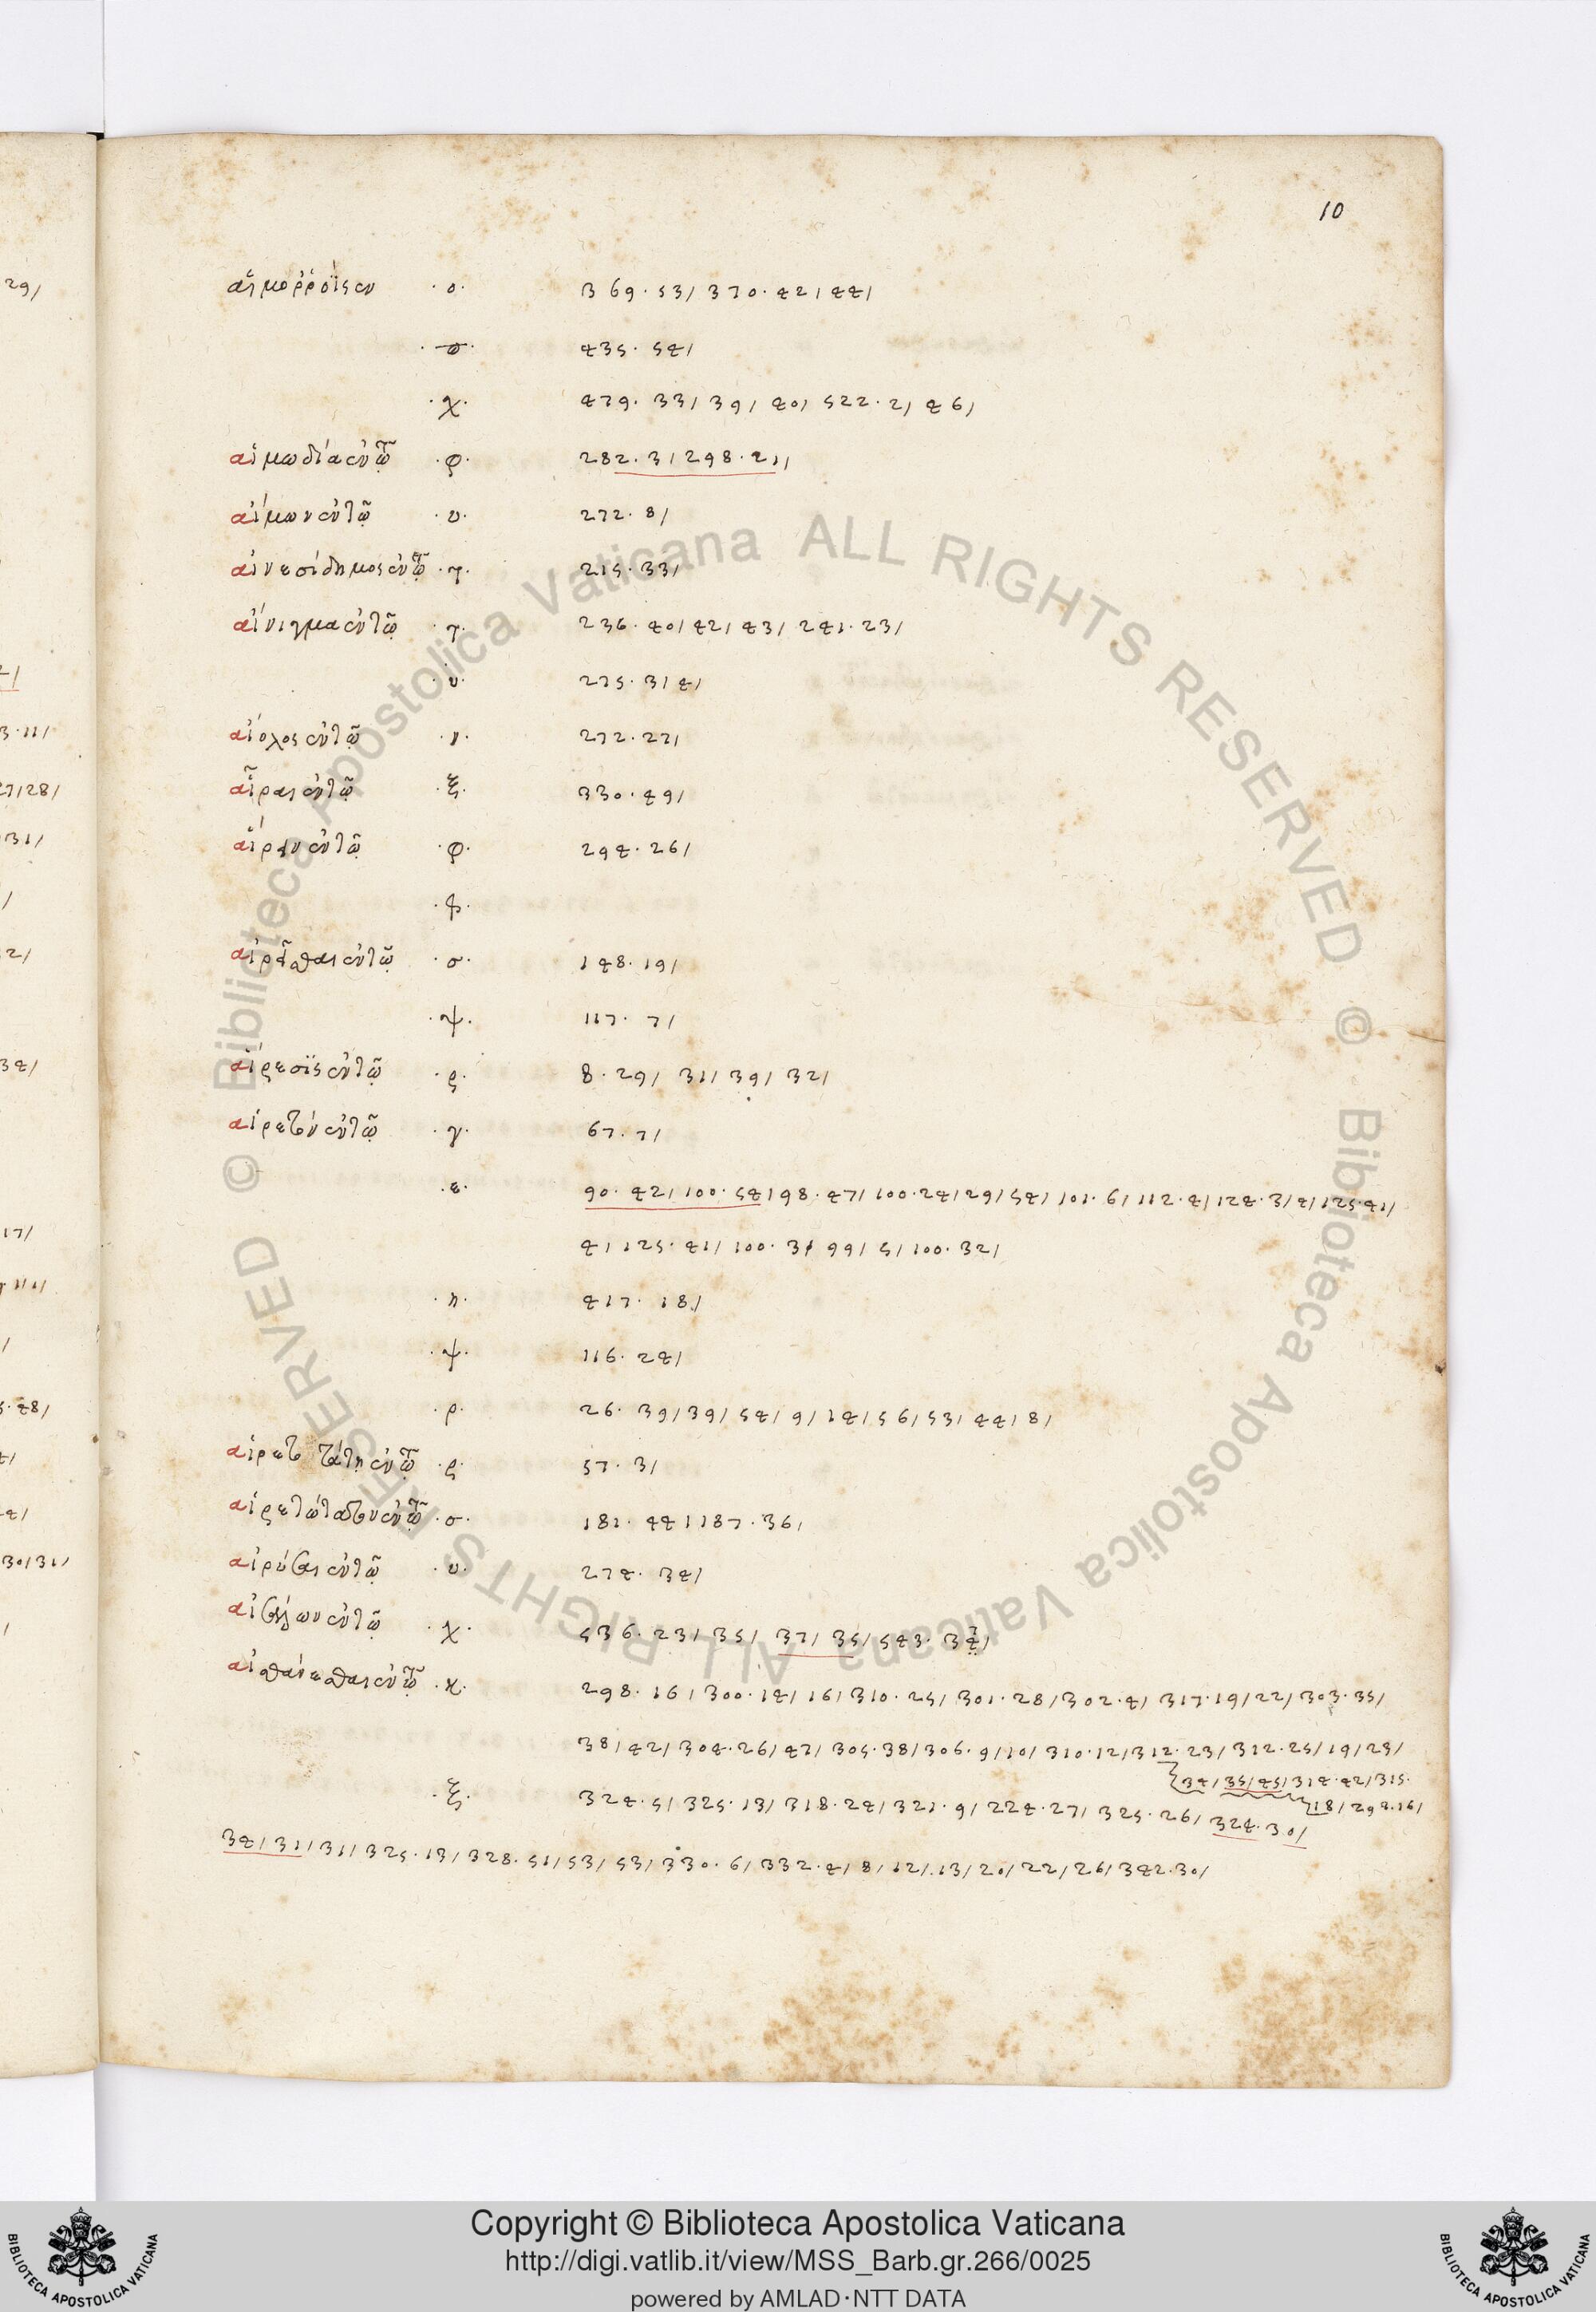 10
αἱμορρόϊς ἐν ·ο· 369·53/ 370·42/ 44/
·σ· 435·54/
·χ· 479·33/ 39/ 40/ 522·2/ 46/
αἱμωδία ἐν τῶ ·φ· 282·3/ 298·21/
αἵμων ἐν τῶ ·υ· 272·8/
αἰνεσίδημος ἐν τῶ ·τ· 215·33/
αἴνιγμα ἐν τῶ ·τ· 236·40/ 42/ 43/ 241·23/
·υ· 275·3/ 4/
αἴολος ἐν τῶ 272·27/
αἶραι ἐν τῶ ·ξ· 330·49/
αἴρειν ἐν τῶ ·φ· 294·26/
αἱρεῖσθαι ἐν τῶ ·σ· 148·19/
·ψ· 117·7/
αἵρεσϊς ἐν τῶ ·ς· 8·29/ 31/ 39/ 32/
αἱρετόν ἐν τῶ ·γ· 67·7/
·ε· 90·42/ 100·54/ 98·47/ 100·24/ 29/ 54/ 101·6/ 112·4/ 124·3/ 4/ 125·41/
4/ 125·41/ 100·3/ 99/ 5/ 100·32/
·η· 417·18/
·ψ· 116·24/
·ρ· 26·39/ 39/ 54/ 9/ 14/ 56/ 53/ 44/ 8/
αἱρετωτάτη ἐν τῶ ·ς· 57·3/
αἱρετώτατον ἐν τῶ ·σ· 181·44/ 187·36/
ἐν τῶ ·υ· 274·34/
ἐν τῶ ·χ· 536·23/ 35/ 37/ 35/ 543·34/
αἰσθάνεσθαι ἐν τῶ ·κ· 298·16/ 300·14/ 16/ 310·25/ 301·28/ 302·4/ 317·19/ 22/ 303·35/
38/ 42/ 304·26/ 47/ 305·38/ 306·9/ 10/ 310·12/ 312·23/ 312·25/ 19/ 23/
34/ 35/ 45/ 314·42/ 315·
18/ 294·16/
·ξ· 324·5/ 325·13/ 318·24/ 321·9/ 224·27/ 325·26/ 324·30/
34/ 31/ 31/ 325·13/ 328·51/ 53/ 53/ 330·6/ 332·4/ 8/ 12/ 13/ 20/ 22/ 26/ 342·30/
© Biblioteca Apostolica Vaticana ALL RIGHTS RESERVED
© Biblioteca Apostolica Vaticana ALL RIGHTS RESERVED
Copyright © Biblioteca Apostolica Vaticana
http://digi.vatlib.it/view/MSS_Barb.gr.266/0025
powered by AMLAD·NTT DATA
BIBLIOTECA APOSTOLICA VATICANA
BIBLIOTECA APOSTOLICA VATICANA